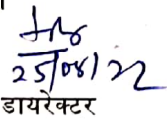 25/08/22
डायरेक्टर